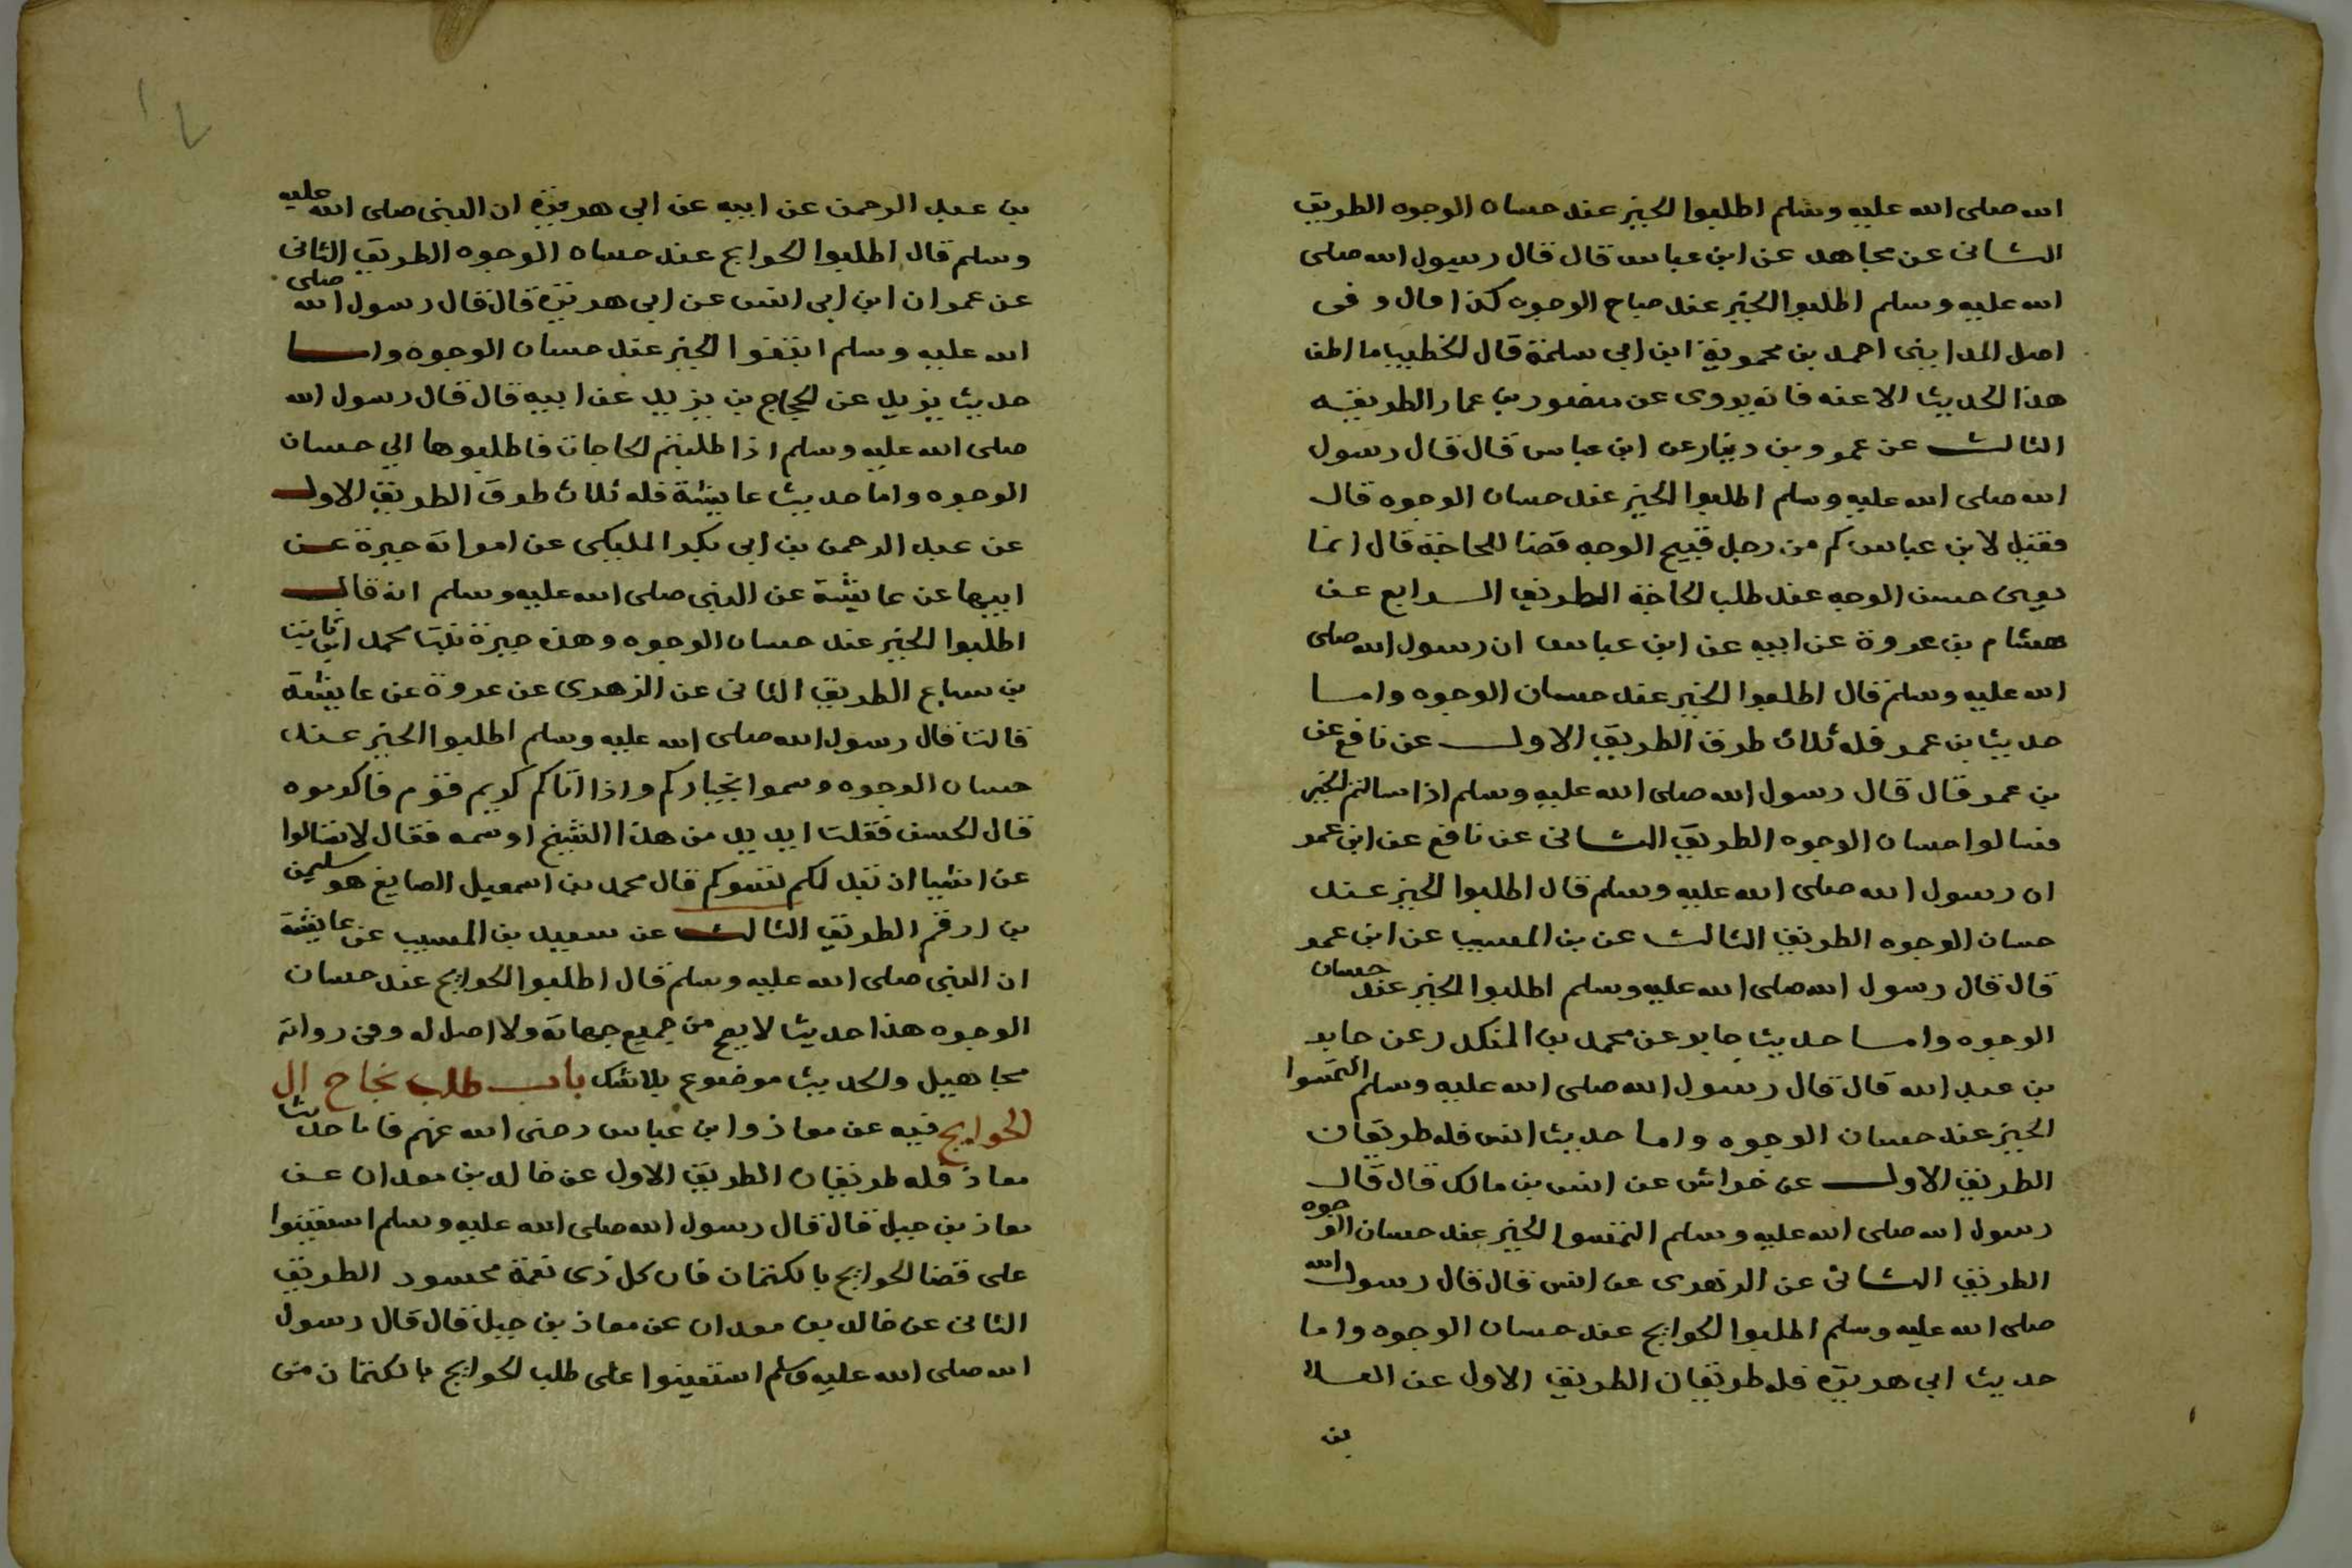 الله صلى الله عليه وسلم اطلبوا الخير عند حسان الوجوه الطريق
الثانى عن مجاهد عن ابن عباس قال قال رسول الله صلى
الله عليه وسلم اطلبوا الخير عند صباح الوجوه كذا قال وفى
اصل المداينى احمد بن محمويه ابن ابى سلمة قال الخطيب ما اظن
هذا الحديث الا عنه فانه يروى عن منصور بن عمار الطريقـه
الثالث عن عمرو بن دينار عن ابن عباس قال قال رسول
الله صلى الله عليه وسلم اطلبوا الخير عند حسان الوجوه قال
فقيل لابن عباس كم من رجل قبيح الوجه قضا للحاجة قال انما
يعنى حسن الوجه عند طلب الحاجة الطريق الرابع عن
هشام بن عروة عن ابيه عن ابن عباس ان رسول الله صلى
الله عليه وسلم قال اطلبوا الخير عند حسان الوجوه واما
حديث بن عمر فله ثلاث طرق الطريق الاول عن نافع عن
بن عمر قال قال رسول الله صلى الله عليه وسلم اذا سالتم الخير
فسالوا حسان الوجوه الطريق الثانى عن نافع عن ابن عمر
ان رسول الله صلى الله عليه وسلم قال اطلبوا الخير عند
حسان الوجوه الطريق الثالث عن بن المسيب عن ابن عمر
قال قال رسول الله صلى الله عليه وسلم اطلبوا الخير عند حسان
الوجوه واما حديث جابر عن محمد بن المنكدر عن جابر
بن عبد الله قال قال رسول الله صلى الله عليه وسلم التمسوا
الخير عند حسان الوجوه واما حديث انس فله طريقان
الطريق الاول عن خراش عن انس بن مالك قال قال
رسول الله صلى الله عليه وسلم التمسوا الخير عند حسان الوجوه
الطريق الثانى عن الزهرى عن انس قال قال رسول الله
صلى الله عليه وسلم اطلبوا الحوايج عند حسان الوجوه واما
حديث ابى هريرة فله طريقان الطريق الاول عن العلا
بن
بن عبد الرحمن عن ابيه عن ابى هريرة ان النبى صلى الله عليه
وسلم قال اطلبوا الحوايج عند حسان الوجوه الطريق الثانى
عن عمران ابن ابى انس عن ابى هريرة قال قال رسول الله صلى
الله عليه وسلم ابتغوا الخير عند حسان الوجوه واما
حديث يزيد عن الحجاج بن يزيد عن ابيه قال قال رسول الله
صلى الله عليه وسلم اذا طلبتم الحاجات فاطلبوها الى حسان
الوجوه واما حديث عايشة فله ثلاث طرق الطريق الاول
عن عبد الرحمن بن ابى بكر المليكى عن امراته جبرة عن
ابيها عن عايشة عن النبى صلى الله عليه وسلم انه قال
اطلبوا الخير عند حسان الوجوه وهذه جبرة بنت محمد ابن ثابت
بن سباع الطريق الثانى عن الزهرى عن عروة عن عايشة
قالت قال رسول الله صلى الله عليه وسلم اطلبوا الخير عند
حسان الوجوه وسموا بخياركم واذا اتاكم كريم قوم فاكرموه
قال الحسن فقلت ايريد من هذا الشيخ اوسمه فقال لا تسالوا
عن اشيا ان تبد لكم تسوكم قال محمد بن اسمعيل الصايغ هو سليمن
بن ارقم الطريق الثالث عن سعيد بن المسيب عن عايشة
ان النبى صلى الله عليه وسلم قال اطلبوا الحوايج عند حسان
الوجوه هذا حديث لا يصح من جميع جهاته ولا اصل له وفى رواته
مجاهيل والحديث موضوع بلاشك باب طلب نجاح ال
الحوايج فيه عن معاذ وابن عباس رضى الله عنهم فاما حديث
معاذ فله طريقان الطريق الاول عن خالد بن معدان عن
معاذ بن جبل قال قال رسول الله صلى الله عليه وسلم استعينوا
على قضا الحوايج بالكتمان فان كل ذى نعمة محسود الطريق
الثانى عن خالد بن معدان عن معاذ بن جبل قال قال رسول
الله صلى الله عليه وسلم استعينوا على طلب الحوايج بالكتمان من